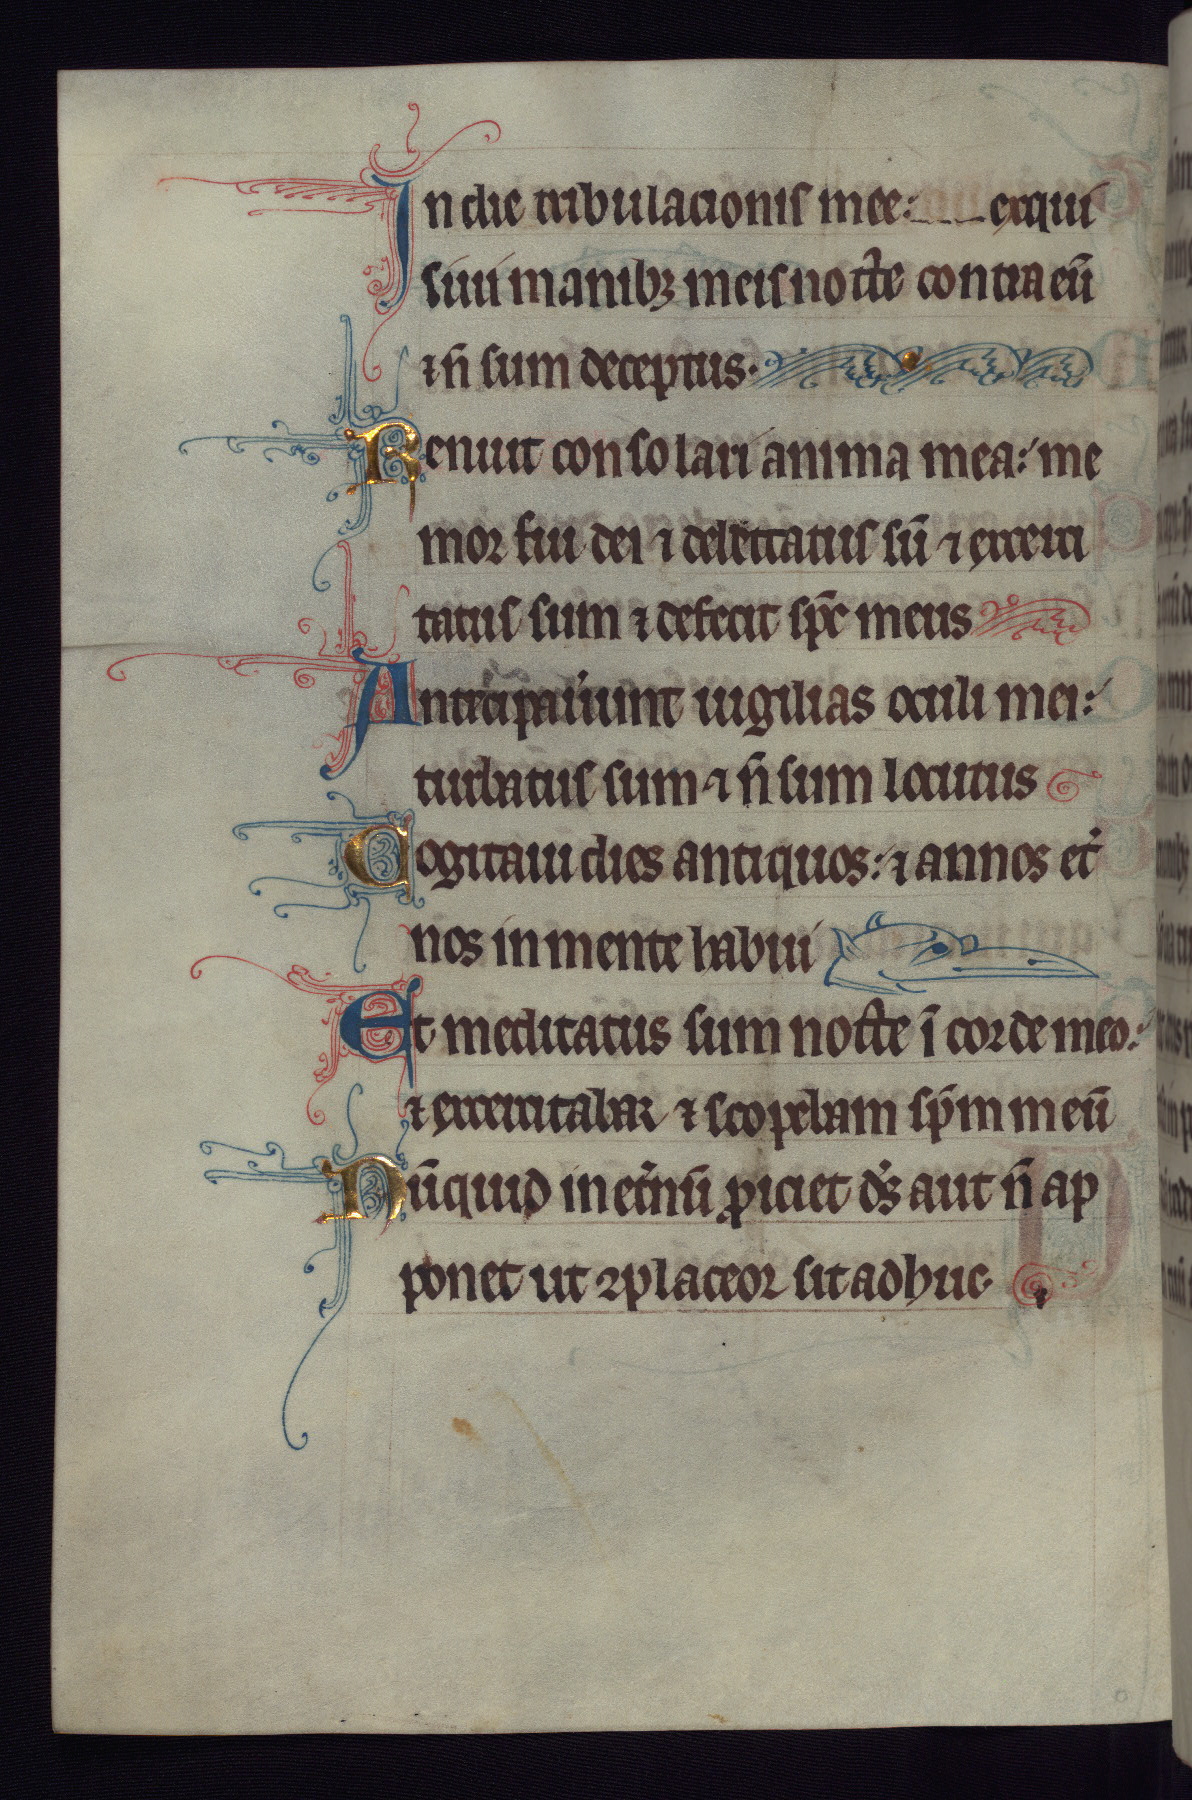 In die tribulacionis mee: exqui
siui manibꝫ meis nocte contra eū
⁊ n̄ sum deceptus.
Renuit consolari anima mea: me
mor fui dei ⁊ delectatus sū ⁊ exerci
tatus sum ⁊ defecit spc̄ meus
Anticipauerunt uigilias oculi mei:
turbatus sum ⁊ n̄ sum locutus
Cogitaui dies antiquos: ⁊ annos et͛
nos in mente habui
Et meditatus sum nocte ī corde meo:
⁊ exercitabar ⁊ scopebam sp̄m meū
Nūquid in et͛nū ꝓiciet ds̄ aut n̄ ap
ponet ut ꝯplaceor sit adhuc.